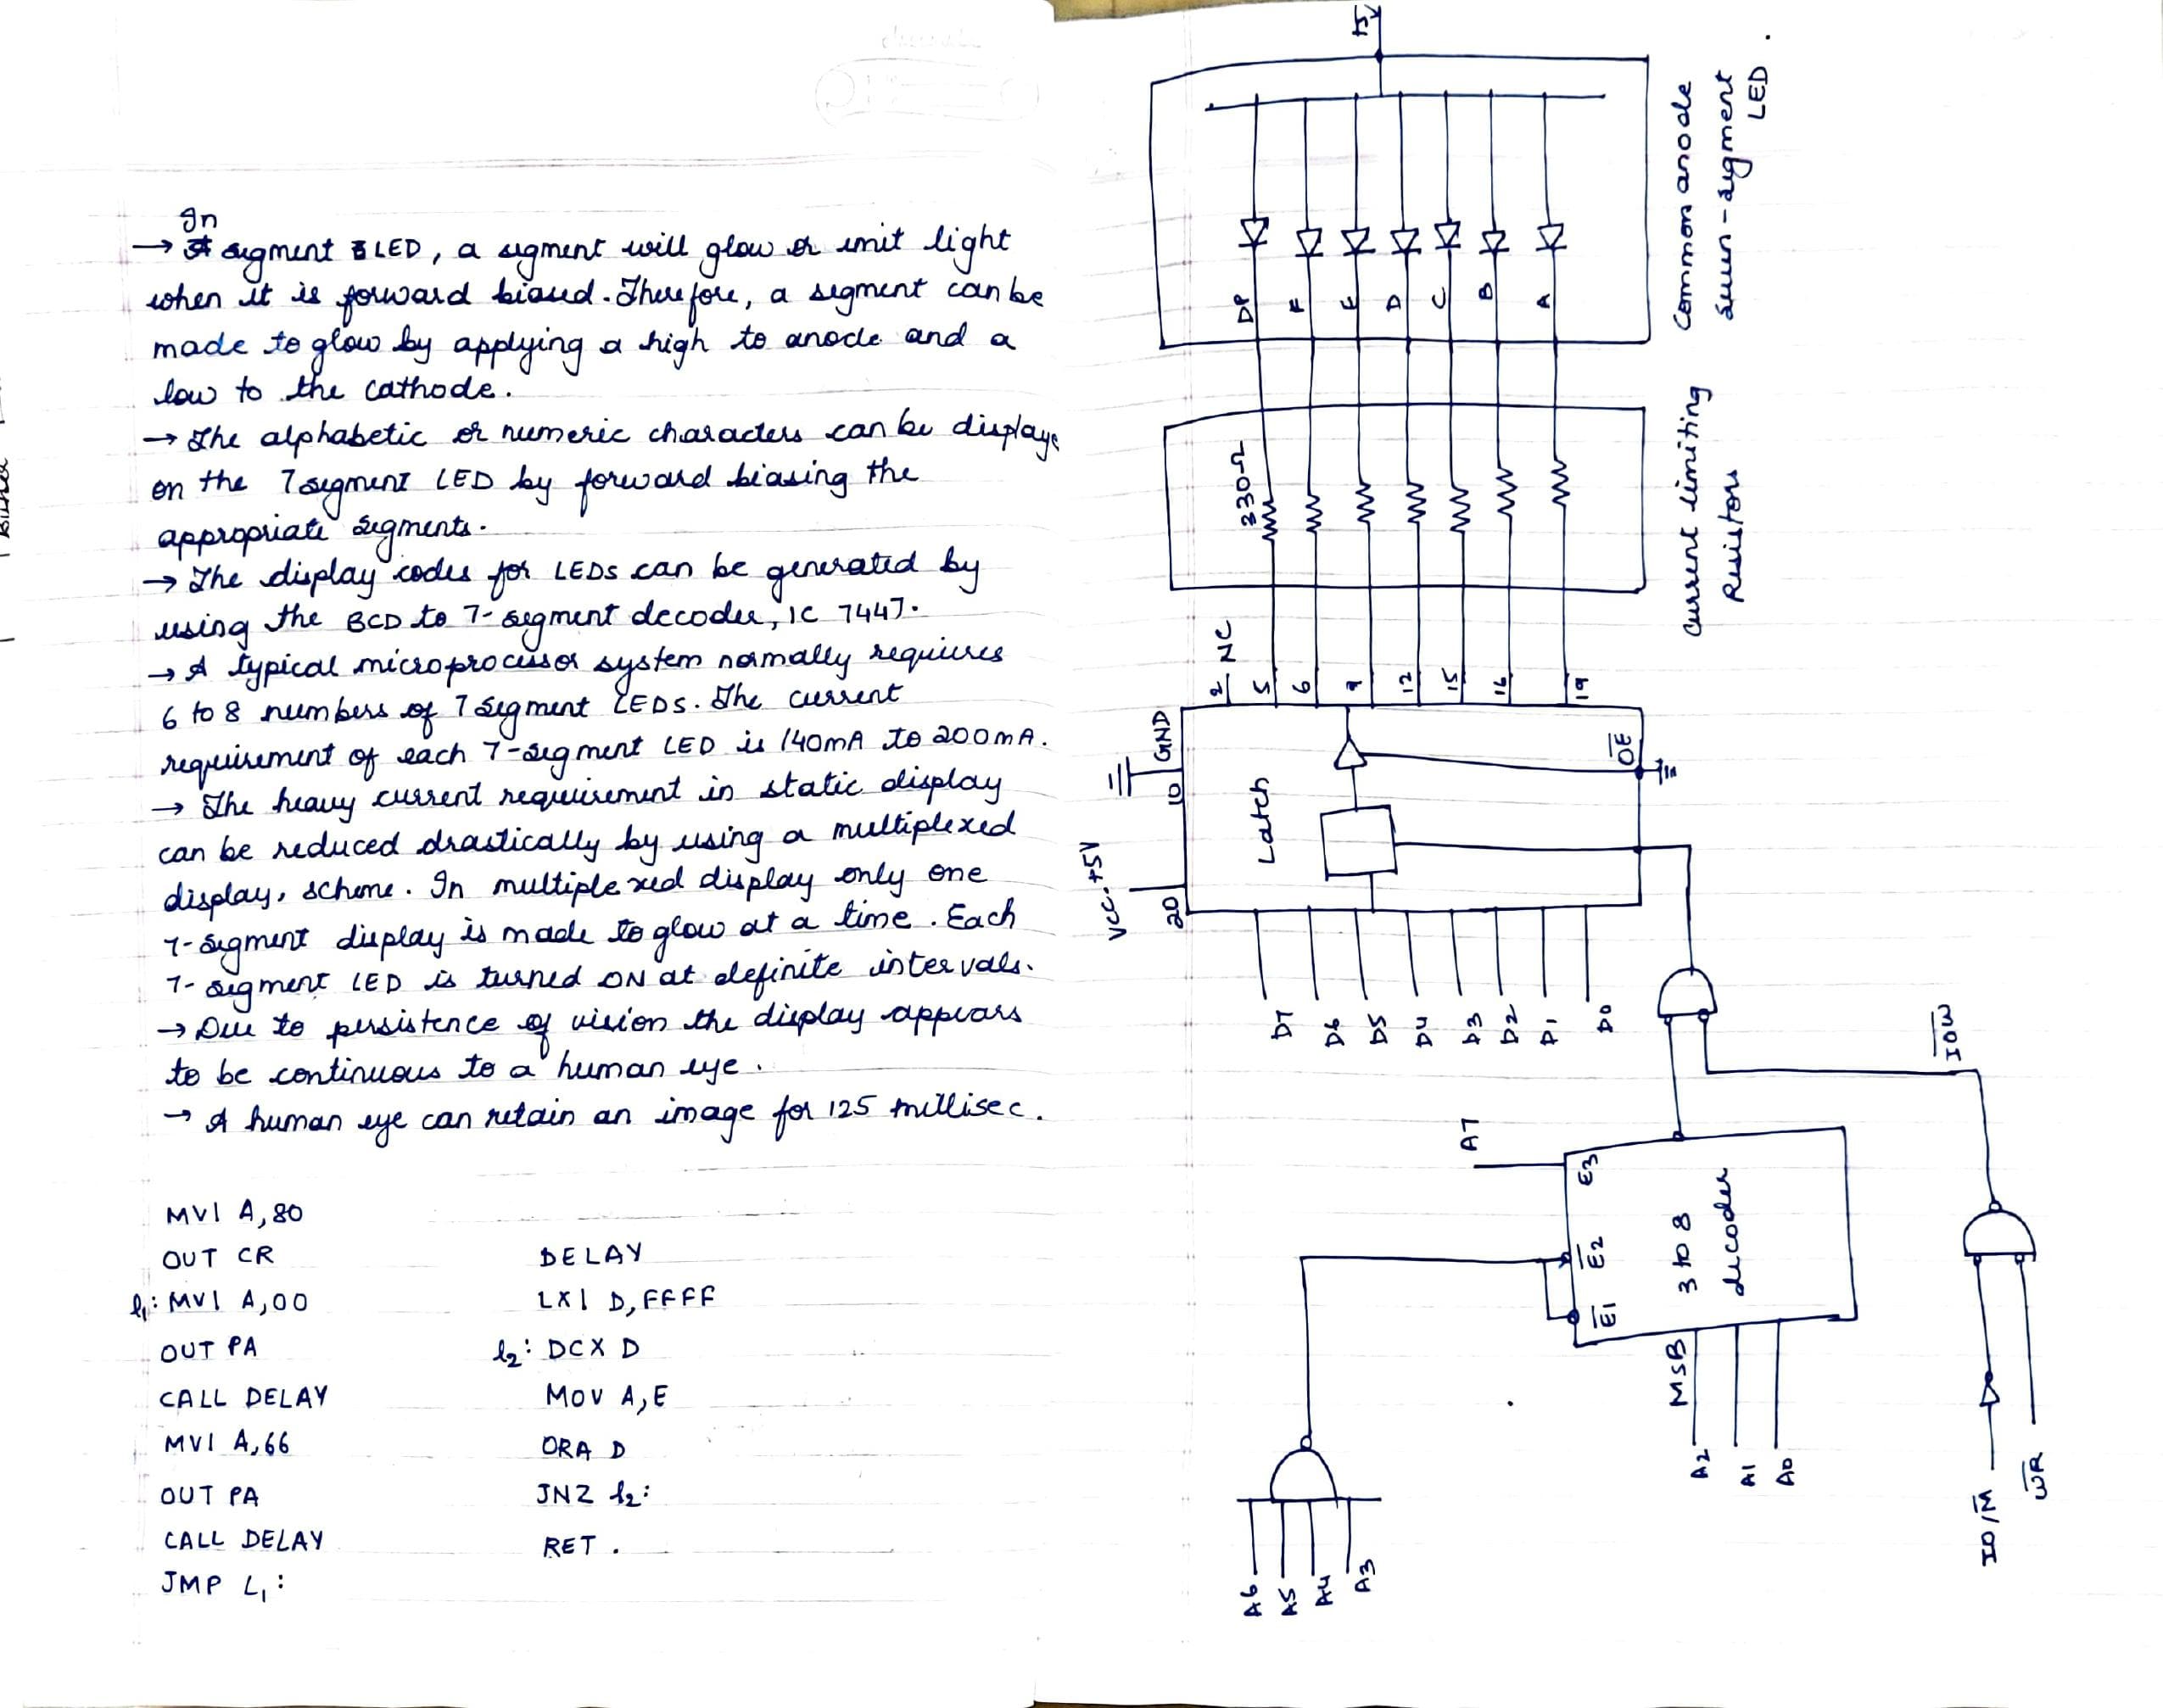 In
→ segment LED, a segment will glow or emit light
when it is forward biased. Therefore, a segment can be
made to glow by applying a high to anode and a
low to the cathode.
→ The alphabetic or numeric characters can be displaye
on the 7 segment LED by forward biasing the
appropriate segments.
→ The display codes for LEDs can be generated by
using the BCD to 7-segment decoder, IC 7447.
→ A typical microprocessor system normally requires
6 to 8 numbers of 7 segment LEDs. The current
requirement of each 7-segment LED is 140mA to 200mA.
→ The heavy current requirement in static display
can be reduced drastically by using a multiplexed
display, scheme. In multiplexed display only one
7-segment display is made to glow at a time. Each
7-segment LED is turned ON at definite intervals.
→ Due to persistence of vision the display appears
to be continuous to a human eye.
→ A human eye can retain an image for 125 millisec.
MVI A,80
OUT CR
l1: MVI A,00
OUT PA
CALL DELAY
MVI A,66
OUT PA
CALL DELAY
JMP L1:
DELAY
LXI D,FFFF
l2: DCX D
MOV A,E
ORA D
JNZ l2:
RET.
+5V
DP F E D C B A
Common anode
seven-segment
LED.
330Ω
Current limiting
Resistors
2 NC
5 6 9 12 15 16 19
GND
10
Latch
OE
Vcc.+5V
20
D7 D6 D5 D4 D3 D2 D1 D0
IOW
A7
E3
E2
E1
3 to 8
decoder
MSB
A2 A1 A0
A6 A5 A4 A3
IO/M
WR